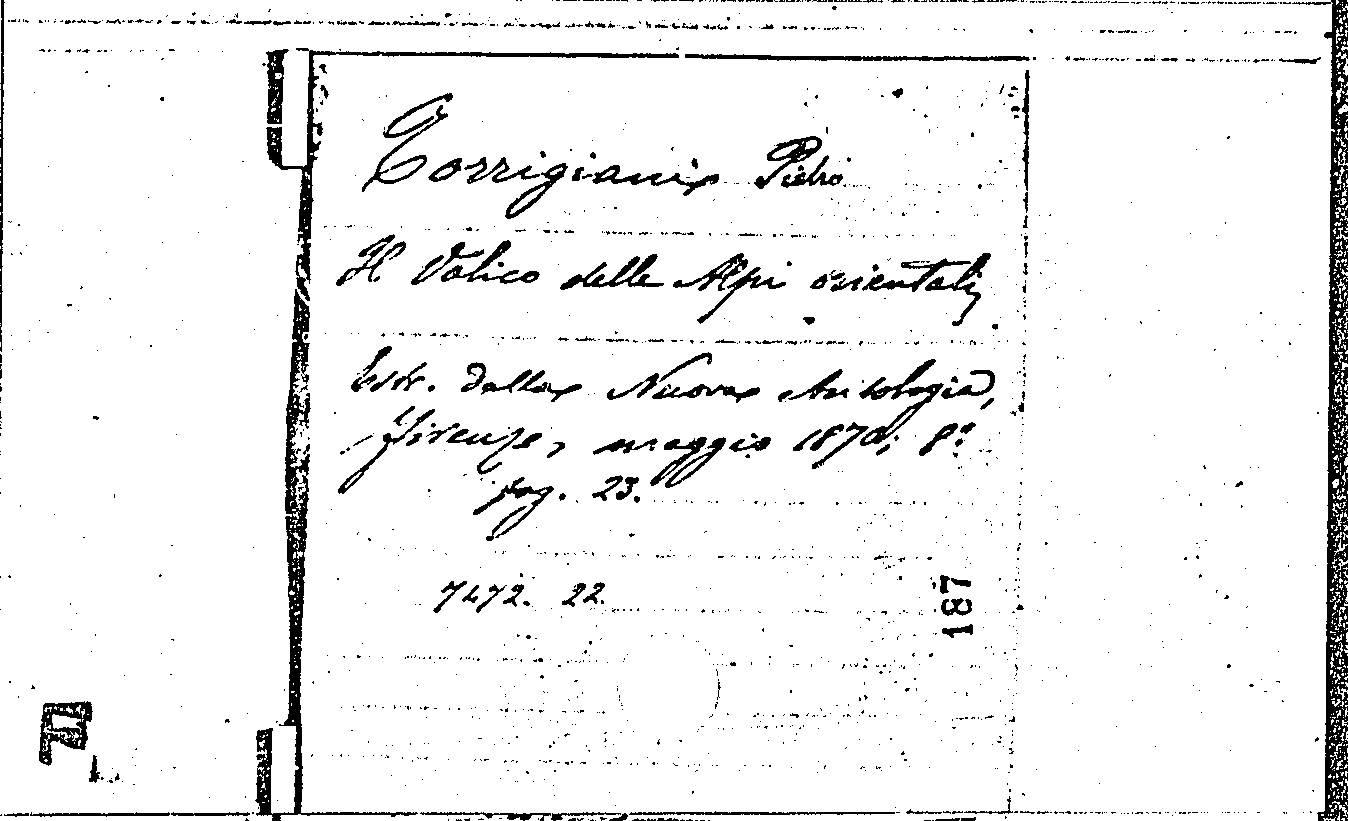 Torrigiani Pietro
Il Valico delle Alpi orientali,
Estr. dalla Nuova Antologia,
Firenze, maggio 1870; 8º
pag. 23.
7472. 22
187